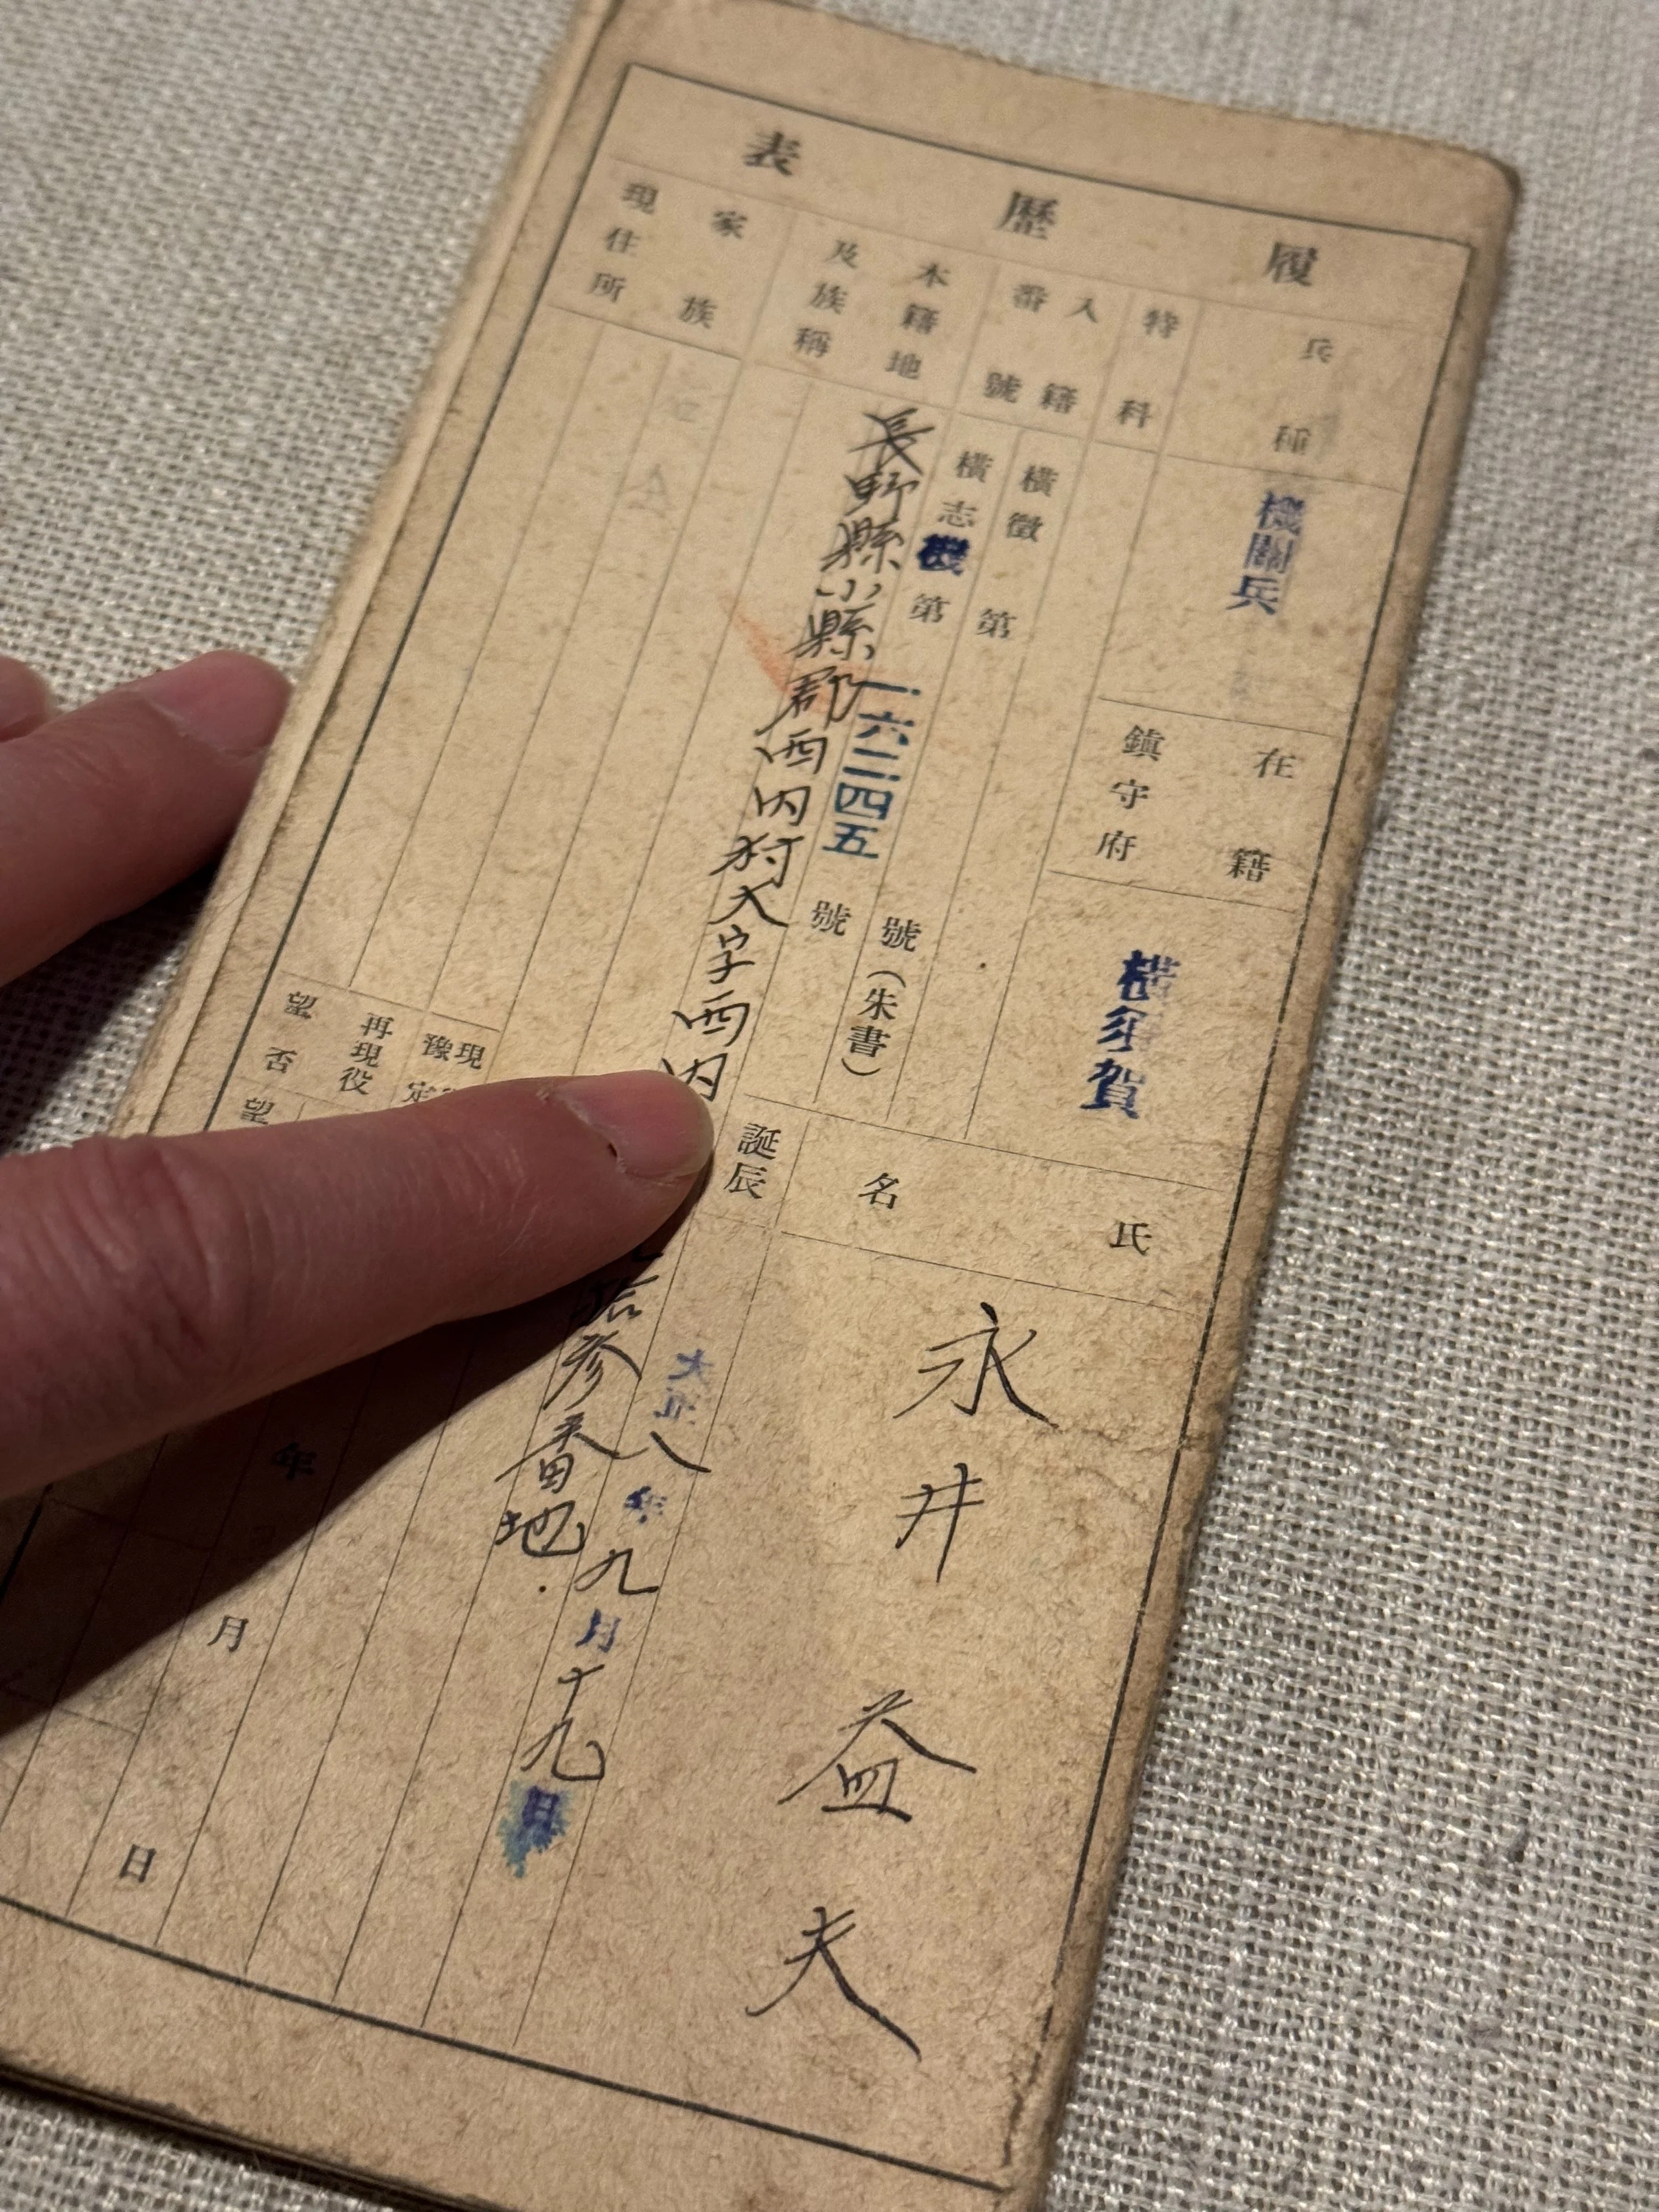 履歷表
兵種
機關兵
在籍
鎮守府
橫須賀
氏名
永井益夫
特科
入籍
番號
橫徵 第 號(朱書)
橫志機第一六二四五號
本籍地
及族稱
長野縣小縣郡西内村大字西内
拾參番地.
誕辰
大正八年九月十九日
家族
現住所
現
豫定
再現役
望否
望
年月日